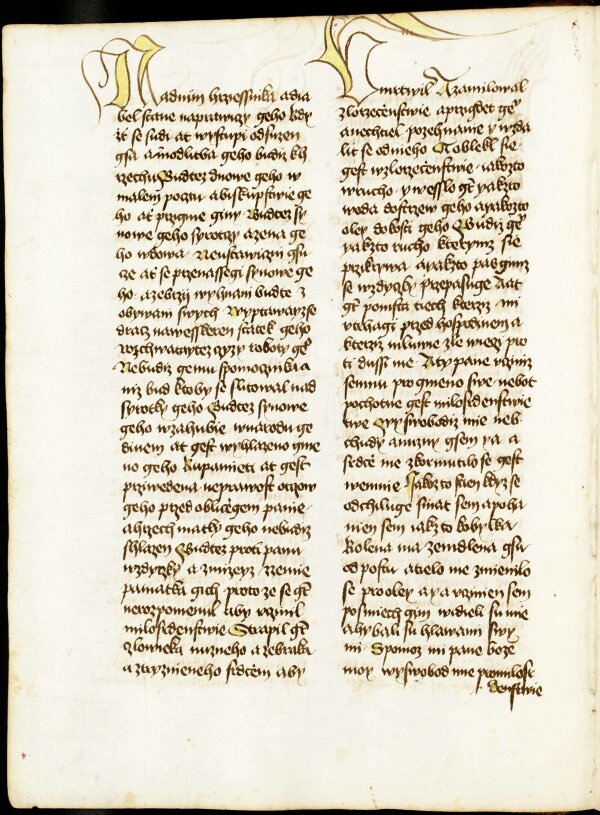 Nadnim hrziessnika adia
bel stane naprawizy geho kdy
zt se sudi at wystupi odsuzen
gsa amodlitba geho budiz kh
rzechu Budtez dnowe geho w
malem pocztu abiskupstwie ge
ho at przigme giny Budtez sy
nowe geho syrotczy azena ge
ho wdowa Neustawizni gsu
ze at se przenassegi synowe ge
ho azebrzij wyhnani budte z
obywani swych Wyptawayzse
dracz nawesskeren statek geho
rozchwacuytez czyzy roboty geho
Nebudiz gemu spomocznika a
niz bud ktoby se slitowal nad
syrotky geho Budtez synowe
geho wzahubie wnarodu ge
dinem at gest wyhlazeno gme
no geho Kupamieti at gest
przwedena neprawost otczow
geho przed obliczegem panie
ahrzech matky geho nebudiz
shlazen Budtez proti panu
wzdyczky a zmizeyz zzemie
pamatka gich proto ze se gest
nerozpomenul aby vczinil
milosrdenstwie Strapil gest
czlowieka nuzneho azebraka
azkrzuzeneho srdcem aby
Umrtwil Azamilowal
zlorzeczenstwie aprzigdet gemu
anechtiel pozehnanie y wzda
lit se odnieho Aoblekl sie
gest wzlorzeczenstwie iakozto
wrucho y wesslo gest yakzto
woda dostrzew geho ayakozto
oley dokosti geho Budiz gemu
yakzto rucho kterymz sie
przikrywa ayakzto pas gimz
se wzdyczky przepasuge Aat
gest pomsta tiech kterziz mi
vtrhagi przed hospodinem a
kterziz mluwie zle wieczy pro
ti dussi me Aty pane vczin z
semnu pro gmeno swe nebot
pochotne gest milosrdenstwie
twe Wyswobodiz mie neb
chudy anuzny gsem ya a
srdce me zkormutilo se gest
wemnie Jakzto stien kdyz se
odchiluge sniat sem apoha
nien sem iakzto kobylka
Kolena ma zemdlena gsu
od postu atielo me zmienilo
se pro oley aya vczinien sem
posmiech gim widieli su mie
ahybali su hlawami swy
mi Spomoz mi pane boze
moy wyswobod mie promilosr
denstwie